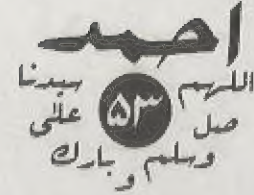 احمد
اللهم صل وسلم و بارك على سيدنا
۵۳